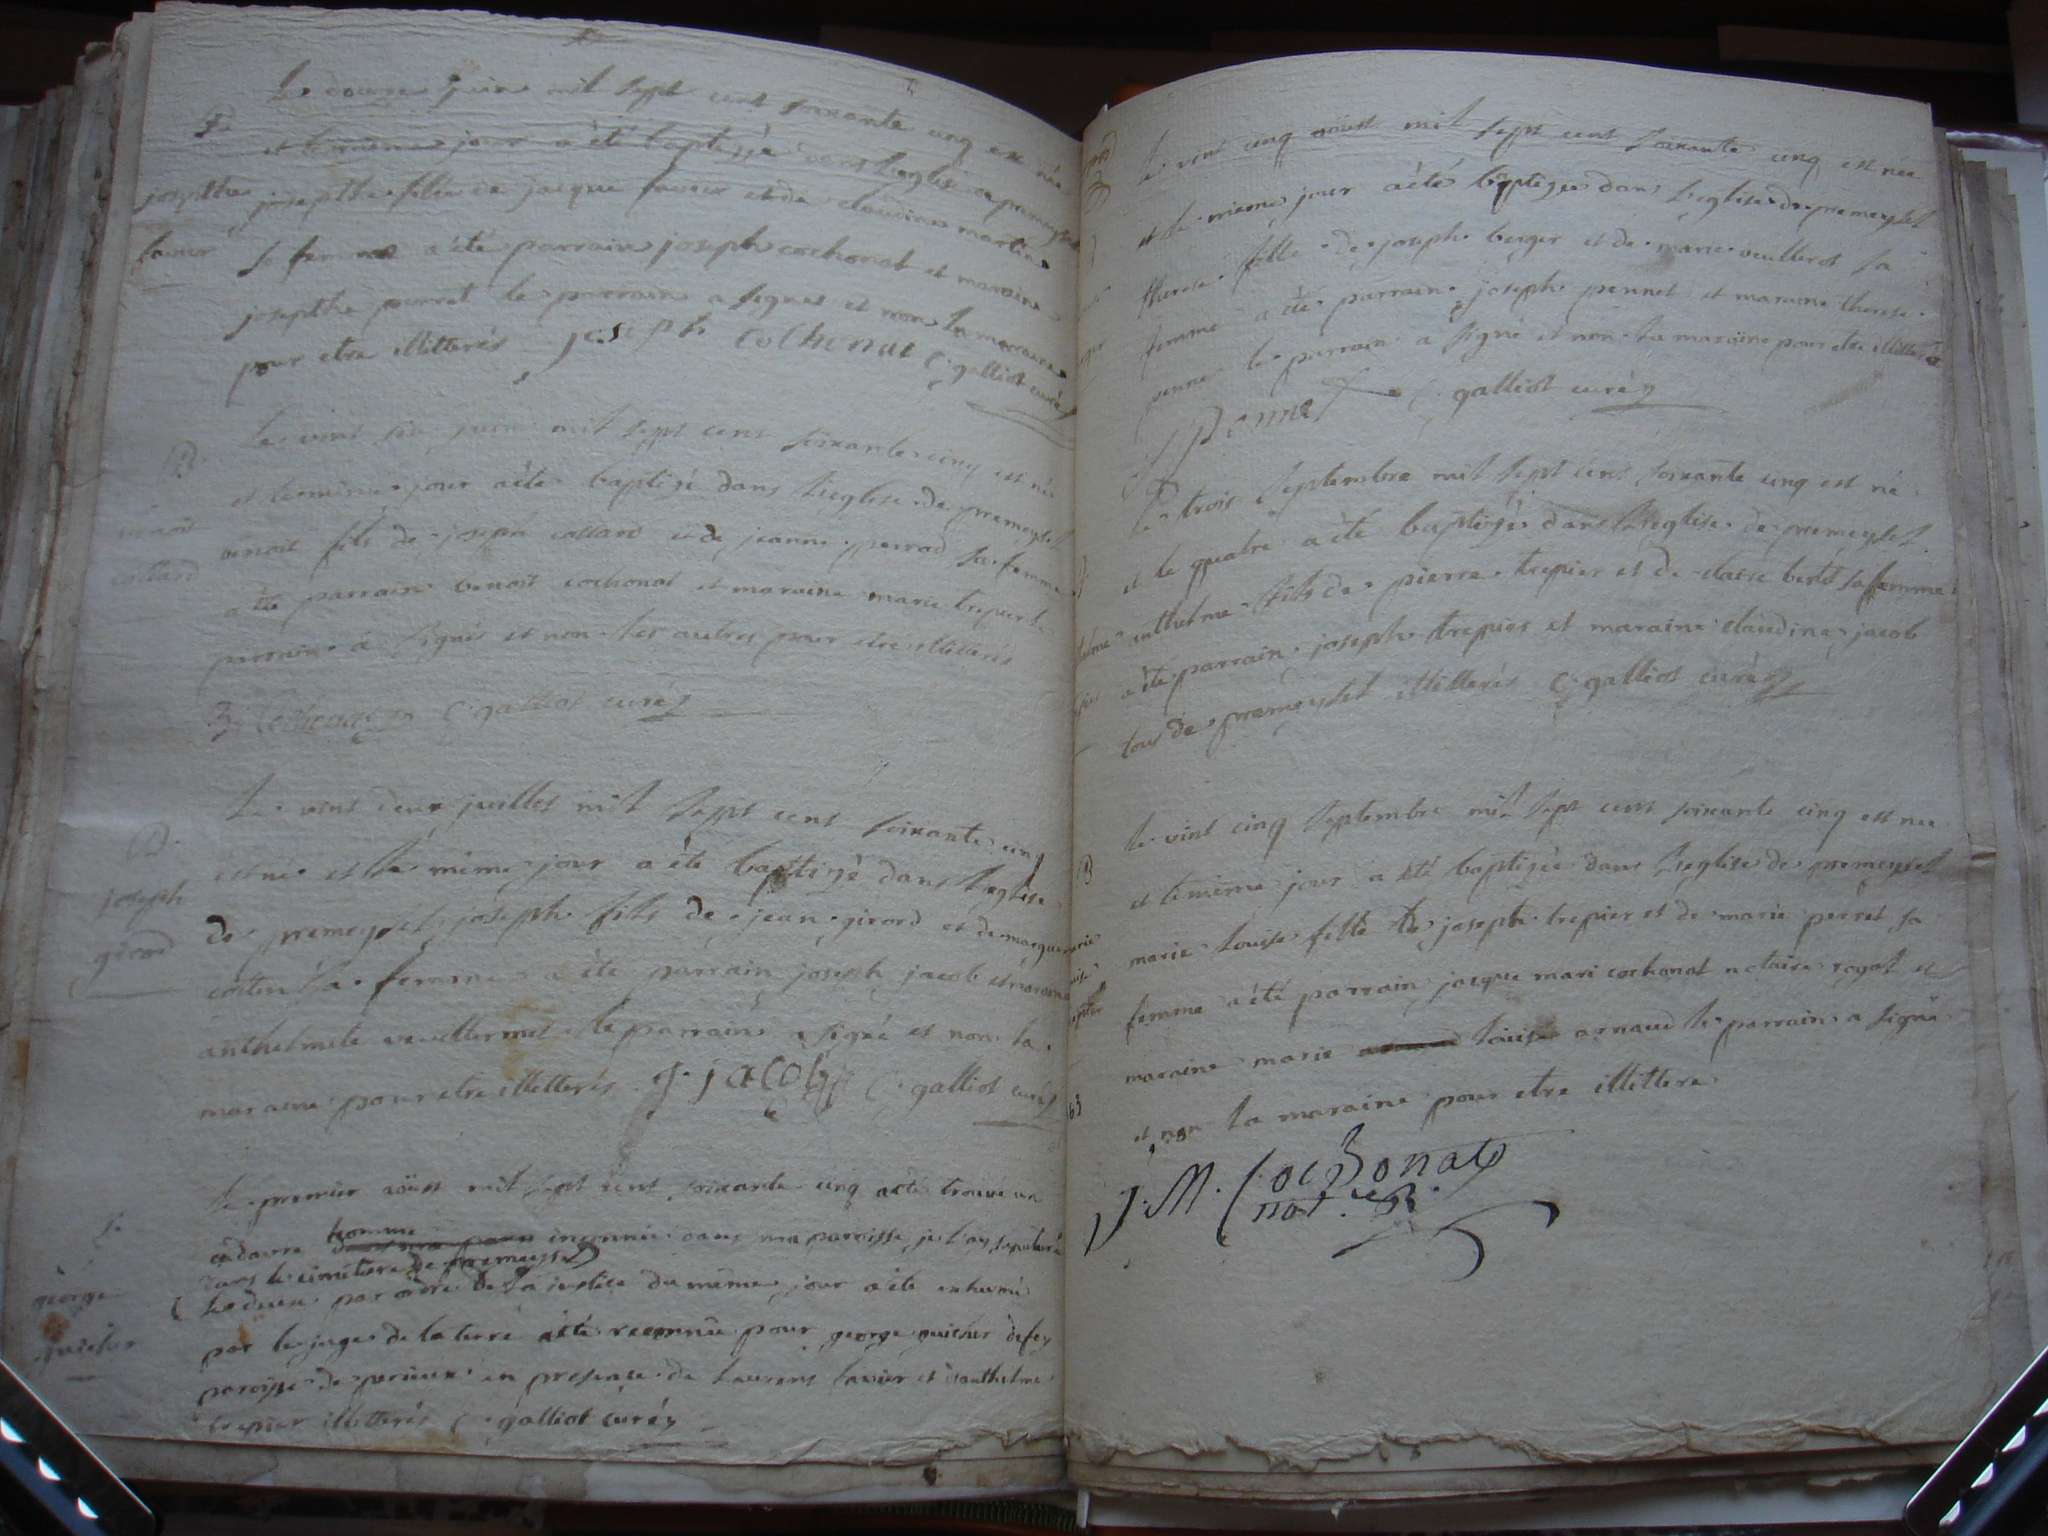 Le douze juin mil sept cent soixante cinq est née
et le meme jour a été baptizée dans l'eglise de premeyzel
josepthe josepthe fille de jacque favier et de claudine martin
favier sa femme a été parrain joseph cochonat et maraine
josepthe perret le parrain a signé et non la maraine
pour etre illitterés joseph cochonat C: galliot curé
B.
Le vint six juin mil sept cent soixante cinq est né
et le meme jour a été baptisé dans l'eglise de premeyzel
benoit benoit fils de joseph collard et de jeanne perrad sa femme
collard a été parrain benoit cochonat et maraine marie trepier le
parrain a signé et non les autres pour etre illitterés
B: Cochonat C: galliot curé
B.
Le vint deux juillet mil sept cent soixante cinq
est né et le même jour a été baptizé dans l'eglise
joseph de premeyzel joseph fils de jean girord et de
girord sa femme a été parrain joseph jacob et maraine
anthelmete veuillermet le parrain a signé et non la
maraine pour etre illitterés J. jacob C: galliot curé
Le premier aöust mil sept cent soixante cinq a été trouvé un
cadavre homme inconnu dans ma paroisse je l'ay sepulturé
dans le cimetiere de premeyzel
par ordre de la justice du meme jour a été exhumé
george par le juge de la terre a été reconnu pour george guicher de fey
guicher paroisse de perieux en presence de laurens favier et d'anthelme
trepier illitterés C: galliot curé
Le vint cinq aöust mil sept cent soixante cinq est née
et le meme jour a été baptizée dans l'eglise de premeyzel
therese fille de joseph berger et de marie veullerot sa
femme a été parrain joseph pennet et maraine therese
penne le parrain a signé et non la maraine pour etre illitterée
J pennet C: galliot curé
B
Le trois septembre mil sept cent soixante cinq est né
et le quatre a été baptizé dans l'eglise de premeyzel
anthelme fils de pierre trepier et de claire berlet sa femme
a été parrain joseph trepier et maraine claudine jacob
tous de premeyzel illitterés C: galliot curé
B
Le vint cinq septembre mil sept cent soixante cinq est née
et le meme jour a été baptizée dans l'eglise de premeyzel
marie louise fille de joseph trepier et de marie perret sa
femme a été parrain jacque mari cochonat notaire royal et
maraine marie louise arnaud le parrain a signé
et non la maraine pour etre illittere
J. M. Cochonat
not. re R.